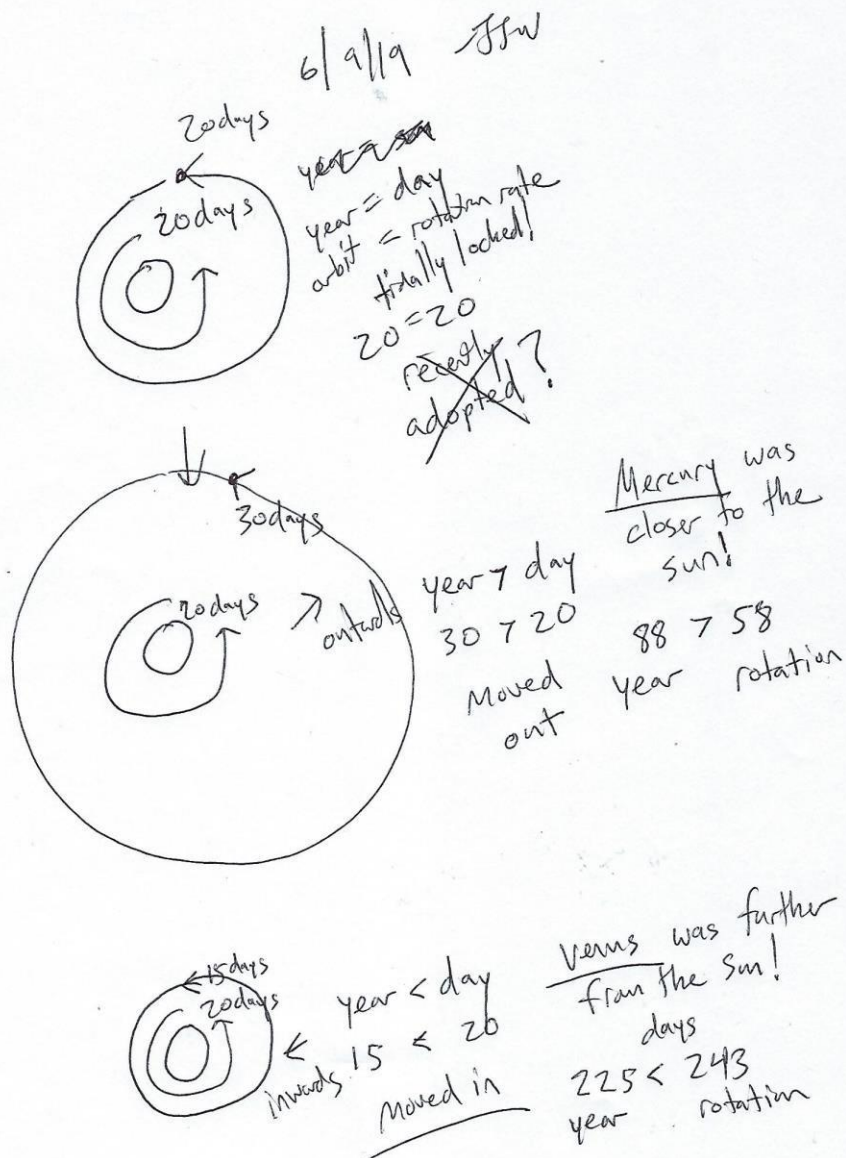 6/9/19 JJW
20days
20days
year =
year = day
orbit = rotation rate
tidally locked!
20 = 20
recently
adopted?
30days
20days
outwards
year > day
30 > 20
Moved
out
Mercury was
closer to the
sun!
88 > 58
year rotation
15days
20days
inwards
year < day
15 < 20
Moved in
Venus was further
from the Sun!
days
225 < 243
year rotation